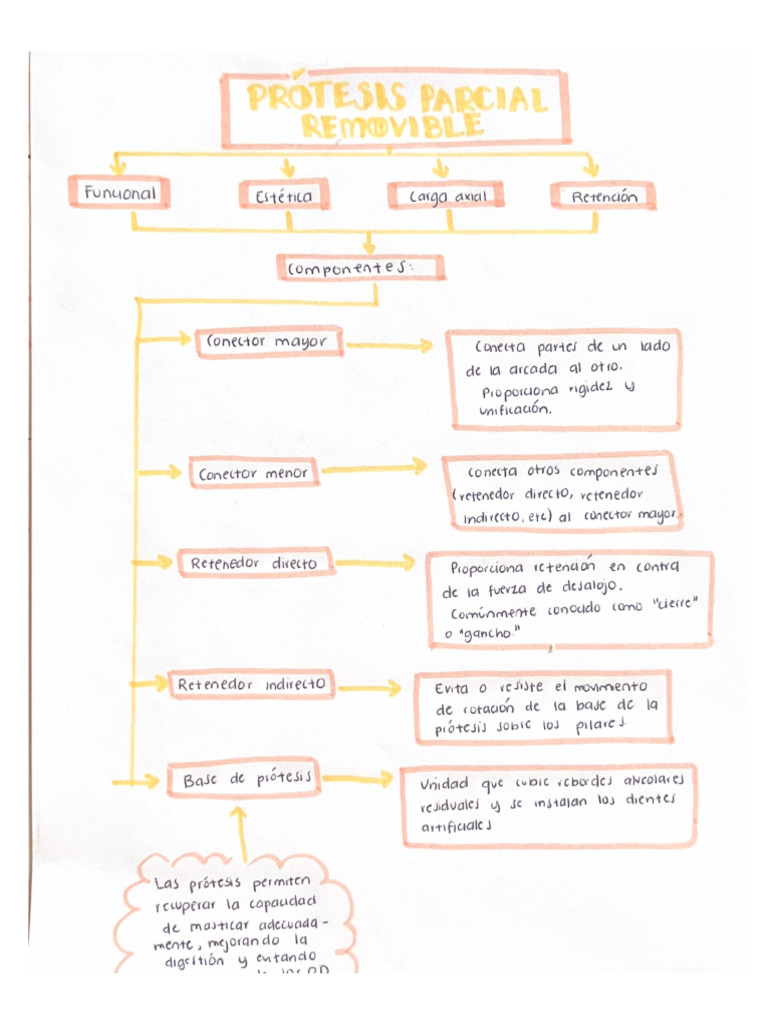 PRÓTESIS PARCIAL
REMOVIBLE
Funcional
Estética
Carga axial
Retención
Componentes:
Conector mayor
Conecta partes de un lado
de la arcada al otro.
Proporciona rigidez y
unificación.
Conector menor
Conecta otros componentes
(retenedor directo, retenedor
indirecto, etc) al conector mayor.
Retenedor directo
Proporciona retención en contra
de la fuerza de desalojo.
Comúnmente conocido como "cierre"
o "gancho"
Retenedor indirecto
Evita o resiste el movimento
de rotación de la base de la
prótesis sobre los pilares.
Base de prótesis
Unidad que cubre rebordes alveolares
residuales y se instalan los dientes
artificiales
Las prótesis permiten
recuperar la capacidad
de masticar adecuada-
mente, mejorando la
digestión y evitando